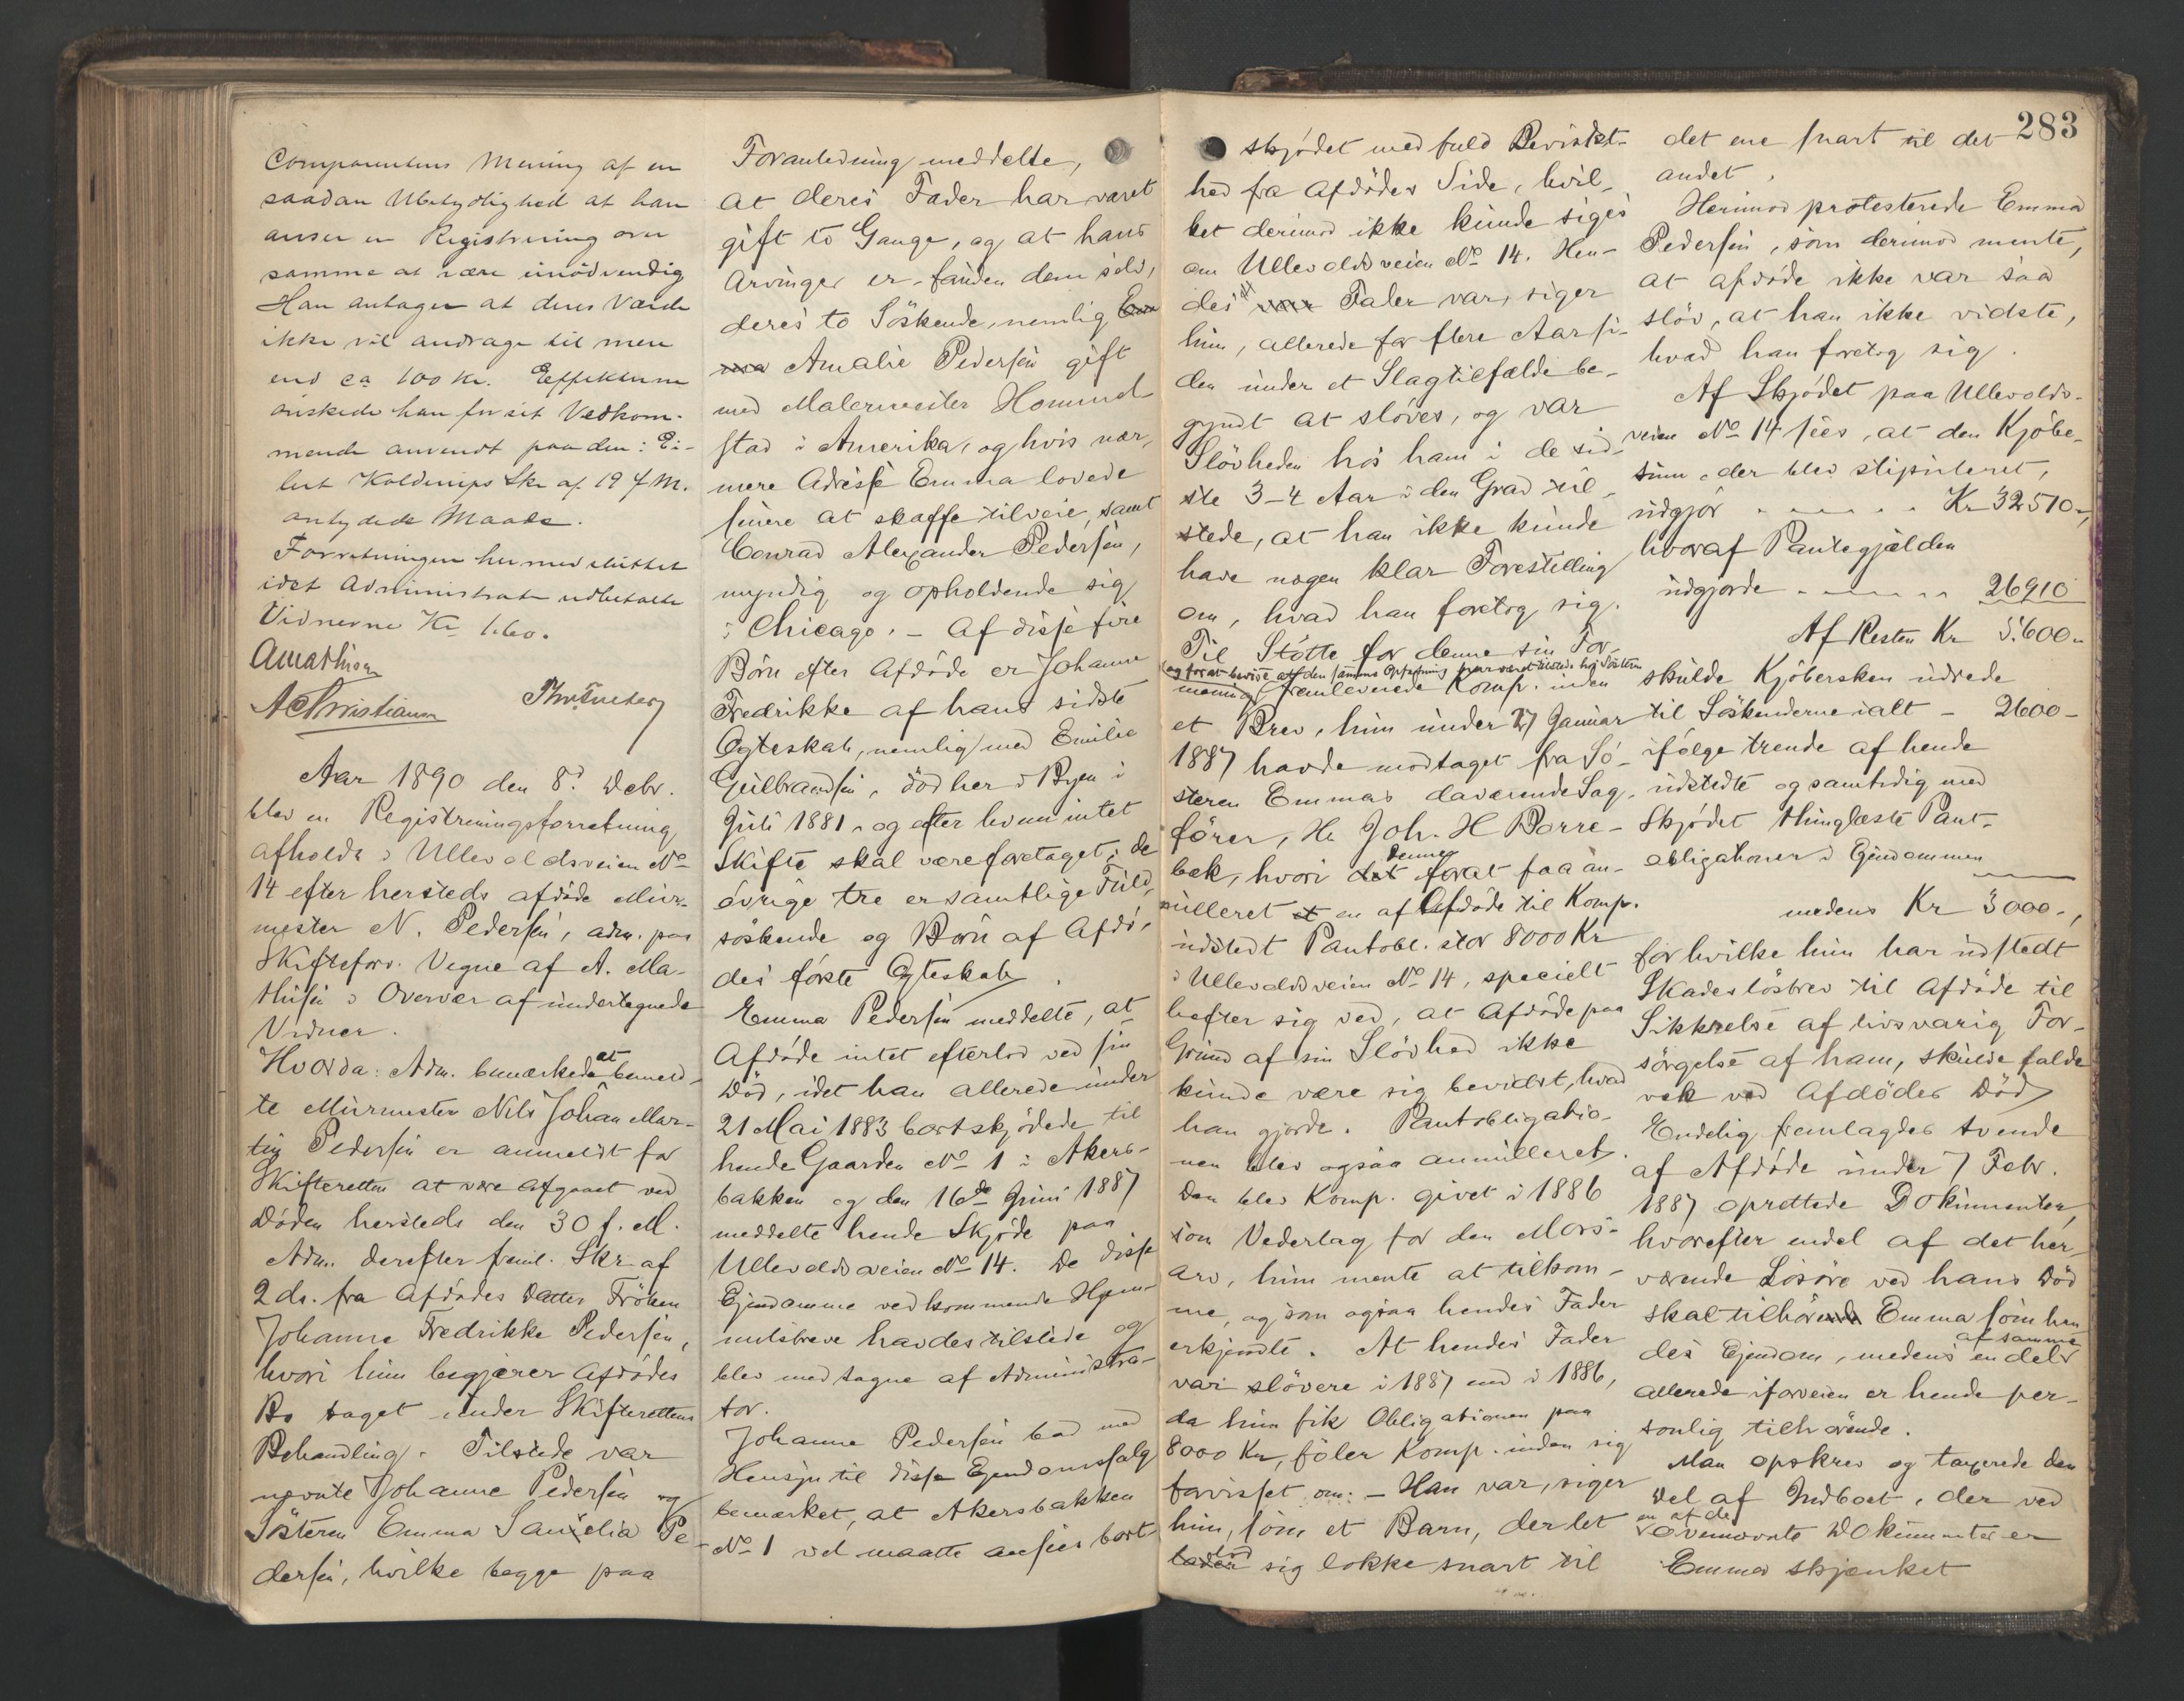 Comparentens Mening af en
saadan Ubetydelighed at han
anser en Registrering over
samme at være unødvendig
Han antager at deres Værdi
ikke vil andrage til mere
end ca 100 Kr. Effekterne
ønskede han for sit Vedkom-
mende anvendt paa den i Ei-
lert Koldrups Skr af 19 f. M.
antydede Maade.
Forretningen hermed sluttet
idet Administrator udbetalte
Vidnerne Kr 1.60.
AMathisen
AChristiansen
Aar 1890 den 8d Debr.
blev en Registreringsforretning
afholdt i Ullevoldsveien No
14 efter hersteds afdøde Mur-
mester N. Pedersen, adm. paa
Skifteforv. Vegne af A. Ma-
thisen i Overvær af undertegnede
Vidner.
Hvorda: Adm. bemærkede at bemeld-
te Murmester Nils Johan Mar-
tin Pedersen er anmeldt for
Skifteretten at være afgaaet ved
Døden hersteds den 30 f. M.
Adm. derefter freml. Skr. af
2 ds. fra Afdødes Datter Frøken
Johanne Fredrikke Pedersen,
hvori hun begjærer Afdødes
Bo taget under Skifterettens
Behandling. Tilstede var
nævnte Johanne Pedersen og
Søsteren Emma Pe-
dersen, hvilke begge paa
Foranledning meddelte,
at deres Fader har været
gift to Gange, og at hans
Arvinger er, foruden dem selv,
deres to Søskende, nemlig Em
ma Amalie Pedersen gift
med Malermester Hommel
stad i Amerika, og hvis nær-
mere Adresse Emma lovede
senere at skaffe tilveie, samt
Conrad Alexander Pedersen,
myndig og opholdende sig
i Chicago. - Af disse fire
Børn efter Afdøde er Johanne
Fredrikke af hans sidste
Egteskab, nemlig med Emilie
Gulbrandsen, død her i Byen i
Juli 1881, og efter hvem intet
Skifte skal være foretaget; de
øvrige tre er samtlige Fuld-
søskende og Børn af Afdø-
des første Egteskab.
Emma Pedersen meddelte, at
Afdøde intet efterlod ved sin
Død, idet han allerede under
21 Mai 1883 bortskjødede til
hende Gaarden No 1 i Akers-
bakken og den 16de Juni 1887
meddelte hende Skjøde paa
Ullevoldsveien No 14. De disse
Ejendomme vedkommende Hjem-
melsbreve havdes tilstede og
blev medtagne af Administra-
tor.
Johanne Pedersen bad med
Hensyn til disse Ejendomssalg
bemærket, at Akersbakken
No 1 vel maatte ansees bort-
283
skjødet med fuld Bevidst-
hed fra Afdødes Side, hvil-
ket derimod ikke kunde siges
om Ullevoldsveien No 14. Hen-
des Fader var, siger
hun, allerede for flere Aar si-
den under et Slagtilfælde be-
gyndt at sløves, og var
Sløvheden hos ham i de sid-
ste 3-4 Aar i den Grad til
stede, at han ikke kunde
have nogen klar Forestilling
om, hvad han foretog sig.
Til Støtte for denne sin For-
og for at bevise at den samme Opfatning har været tilstede hos Søsteren
mening fremleverede Komp. inden
et Brev, hun under 27 Januar
1887 havde modtaget fra Sø-
steren Emmas daværende Sag-
fører, Hr Joh. H Borre-
bæk, hvori det denne forat faa an-
nulleret et en af Afdøde til Komp.
udstedt Pantobl. stor 8000 Kr
i Ullevoldsveien No 14, specielt
hefter sig ved, at Afdøde paa
Grund af sin Sløvhed ikke
kunde være sig bevidst, hvad
han gjorde. Pantobligatio-
nen blev ogsaa annulleret.
Den blev Komp. givet i 1886
som Vederlag for den Mors-
arv, hun mente at tilkom-
me, og som ogsaa hendes Fader
erkjendte. At hendes Fader
var sløvere i 1887 end i 1886,
da hun fik Obligationen paa
8000 Kr, føler Komp. inden sig
forvisset om: - Han var, siger
hun, som et Barn, der let
lader lod sig lokke snart til
det ene snart til det
andet.
Herimod protesterede Emma
Pedersen, som derimod mente,
at afdøde ikke var saa
sløv, at han ikke vidste,
hvad han foretog sig.
Af Skjødet paa Ullevolds-
veien No 14 sees, at den Kjøbe-
sum, der blev stipuleret,
udgjør - - - - - Kr 32510-,
hvoraf Pantegjælden
udgjorde - - - - - 26910
Af Resten Kr 5.600-
skulde Kjøbersken udrede
til Søskenderne ialt - 2600-
ifølge trende af hende
udstedte og samtidig med
Skjødet thinglæste Pant-
obligationer i Ejendommen
medens Kr 3000-,
for hvilke hun har udstedt
Skadesløsbrev til Afdøde til
Sikkrelse af livsvarig For-
sørgelse af ham, skulde falde
væk ved Afdødes Død
Endelig fremlagdes tvende
af Afdøde under 7 Febr.
1887 oprettede Dokumenter,
hvorefter endel af det her
værende Løsøre ved hans Død
skal tilhørende Emma som hen
des Ejendom, medens en del af samme
allerede iforveien er hende per-
sonlig tilhørende.
Man opskrev og taxerede den
Del af Indboet, der ved
en af de
ovennævnte Dokumenter er
Emma skjænket